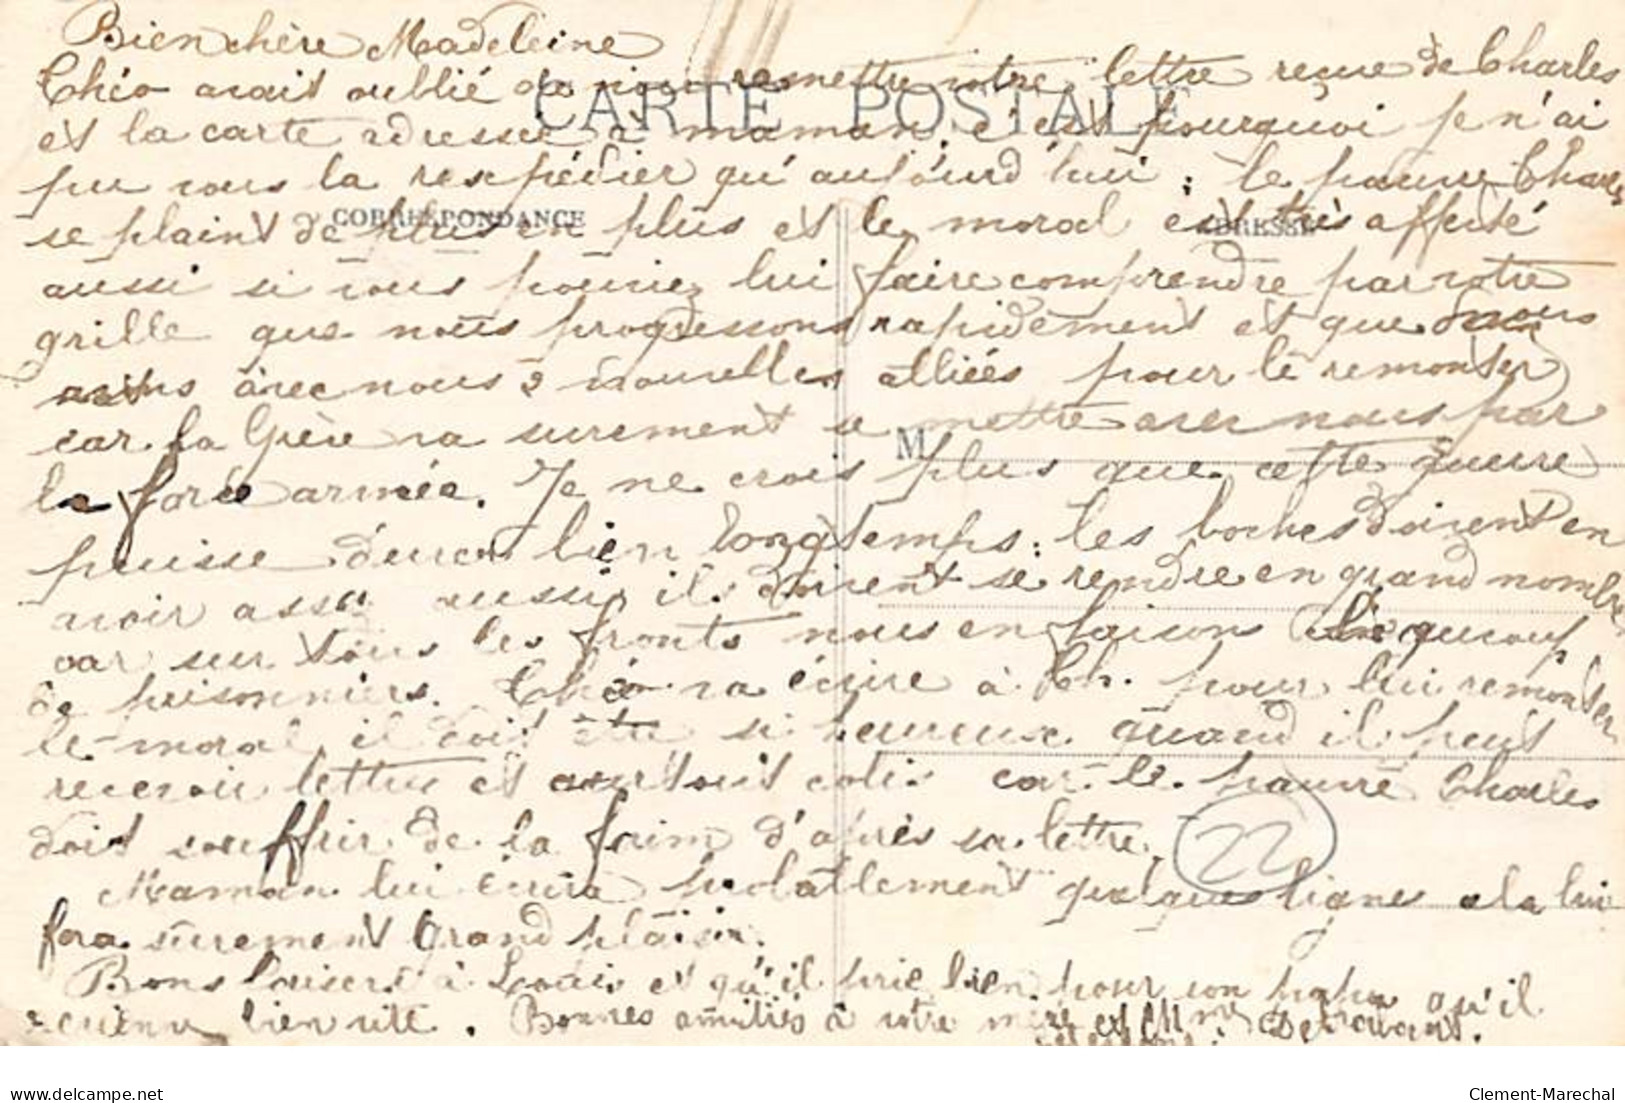 Bien chère Madeleine
CARTE POSTALE
Théo avait oublié de remettre votre lettre reçue de Charles
et la carte adressée à maman, c'est pourquoi je n'ai
pu vous la rexpédier qu'aujourd'hui ; le pauvre Charles
CORRESPONDANCE
ADRESSE
se plaint de plus en plus et le moral est très affecté
aussi si vous pouviez lui faire comprendre par votre
grille que nous progressons rapidement et que nous
avons avec nous 2 nouvelles alliées pour le remonter
car la Grèce va surement se mettre avec nous par
M
la force armée. Je ne crois plus que cette guerre
puisse durer bien longtemps : les boches doivent en
avoir assez aussi ils doivent se rendre en grand nombre
car sur tous les fronts nous en faisons beaucoup
de prisonniers. Théo va écrire à Ch. pour lui remonter
le moral, il doit être si heureux quand il peut
recevoir lettre et surtout colis car le pauvre Charles
doit souffrir de la faim d'après sa lettre.
22
Maman lui écrira probablement quelques lignes cela lui
fera surement grand plaisir.
Bons baisers à Louis et qu'il prie bien pour son papa qu'il
revienne bien vite. Bonnes amitiés à votre mère et Mme
delcampe.net
Clement-Marechal